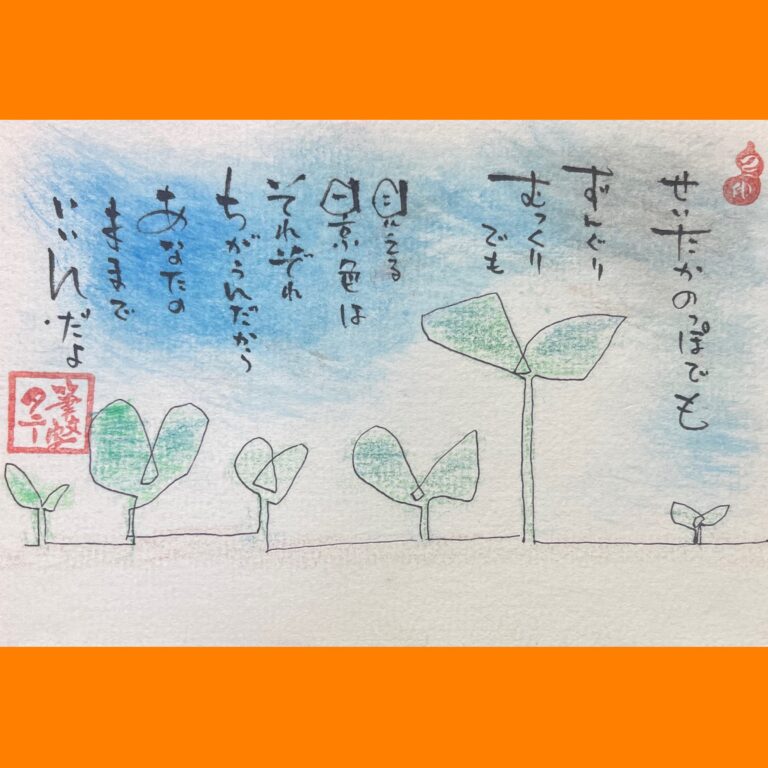 せいたかのっぽでも
ずんぐり
むっくり
でも
見える
景色は
それぞれ
ちがうんだから
あなたの
ままで
いいんだよ